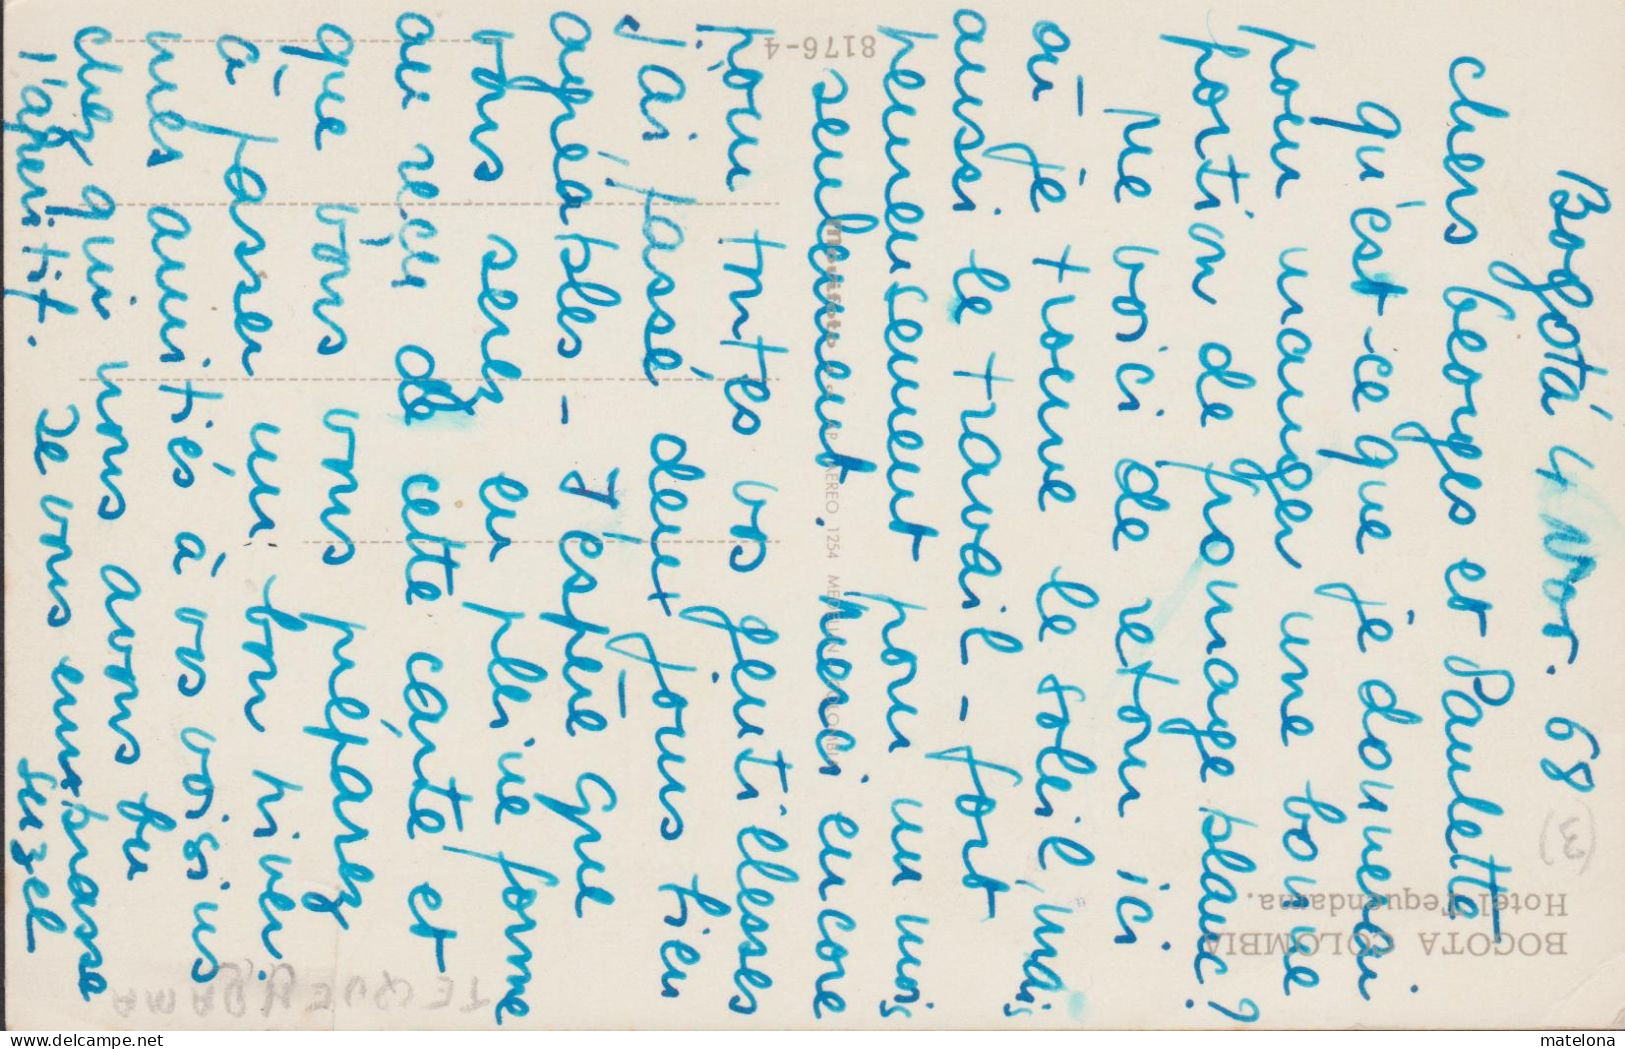 Bogotá 4 Nov. 68
chers Georges et Paulette
qu'est-ce que je donnerai
pour manger une bonne
portion de fromage blanc?
Me voici de retour ici
où je trouve le soleil, mais
aussi le travail - fort
heureusement pour un mois
seulement. Merci encore
pour toutes vos gentillesses
J'ai passé deux jours bien
agréables - J'espère que
vous serez en pleine forme
au reçu de cette carte et
que vous vous préparez
à passer un bon hiver.
mes amitiés à vos voisins
chez qui nous avons bu
l'apéritif. Je vous embrasse
Suzel
BOGOTA COLOMBIA
Hotel Tequendama.
(3)
TEQUENDAMA
8176-4
movifoto AP. AEREO 1254 MEDELLIN COLOMBIA
matelona